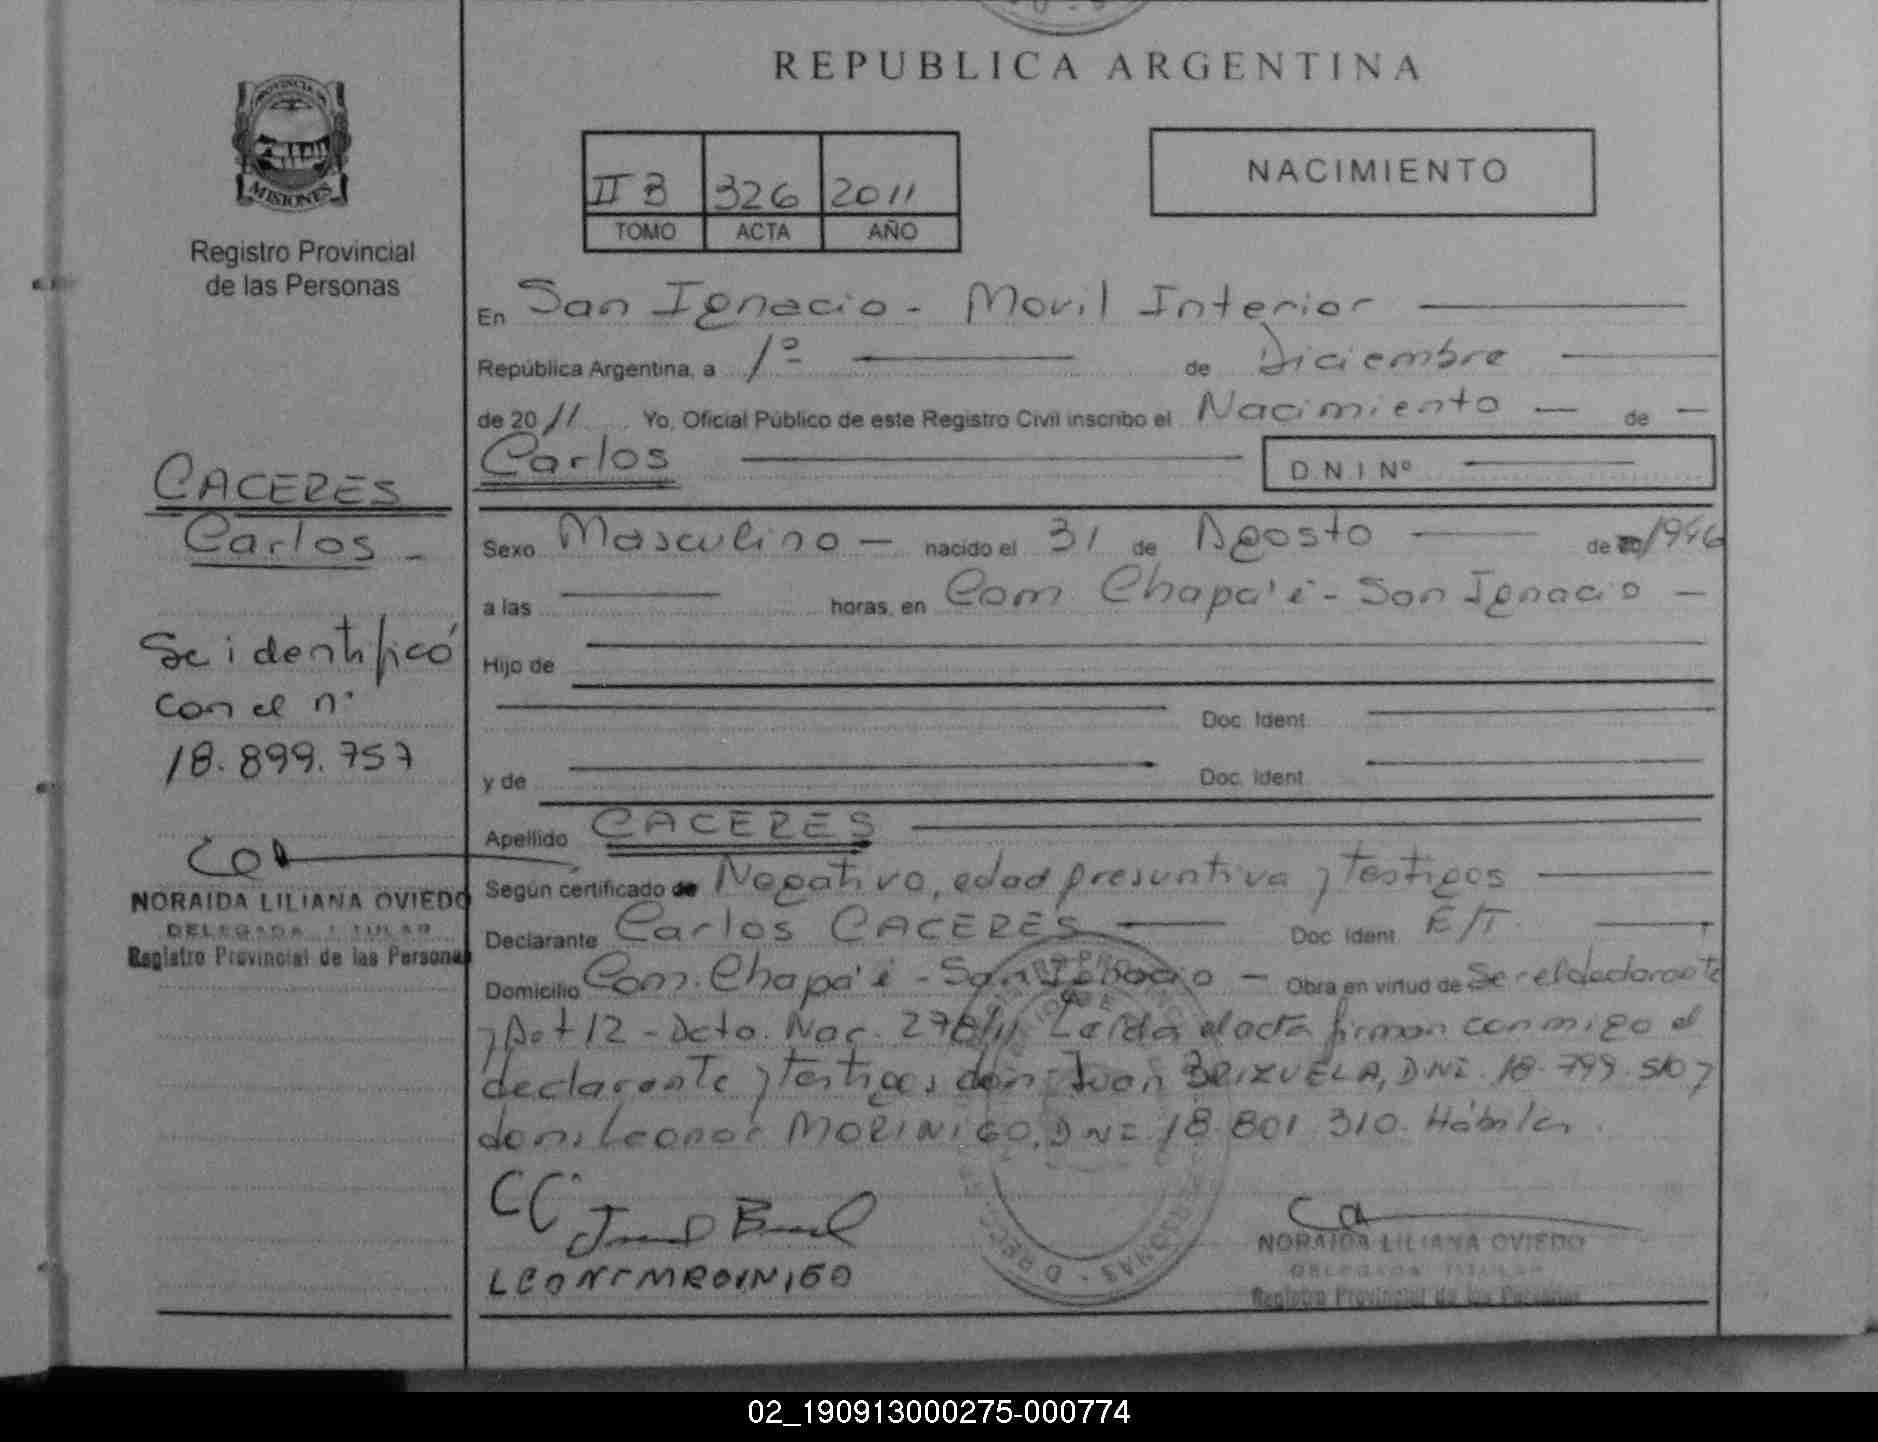 REPUBLICA ARGENTINA
PROVINCIA DE
MISIONES
Registro Provincial
de las Personas
II B 326 2011
TOMO ACTA AÑO
NACIMIENTO
En San Ignacio - Movil Interior
República Argentina, a 1º de Diciembre
de 2011 Yo, Oficial Público de este Registro Civil inscribo el Nacimiento de
Carlos D.N.I Nº
CACERES
Carlos -
Se identificó
con el nº
18.899.757
NORAIDA LILIANA OVIEDO
DELEGADA TITULAR
Registro Provincial de las Personas
Sexo Masculino nacido el 31 de Agosto de 1946
a las horas, en Com Chapa'i - San Ignacio
Hijo de
Doc. Ident.
y de Doc. Ident.
Apellido CACERES
Según certificado de Negativo, edad presuntiva y testigos
Declarante Carlos CACERES Doc Ident E/T.
Domicilio Com. Chapa'i - San Ignacio - Obra en virtud de Ser el declarante
y Art 12 - Dcto. Nac. 278/11 Leída el acta firman conmigo el
declarante y testigos don Juan BRIZUELA, DNI. 18.799.510 y
doña Leonor MORINIGO, DNI 18.801.310. Hábiles.
CC
NORAIDA LILIANA OVIEDO
DELEGADA TITULAR
Registro Provincial de las Personas
02_190913000275-000774